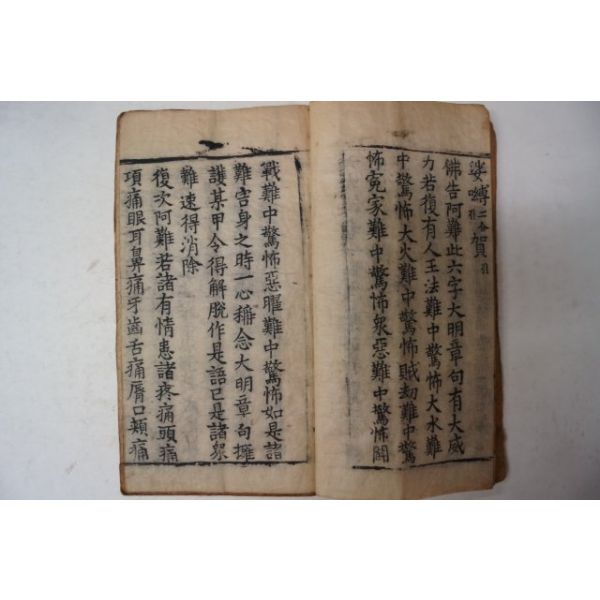 娑嚩二合賀引
佛告阿難此六字大明章句有大威
力若復有人王法難中驚怖大水難
中驚怖大火難中驚怖賊劫難中驚
怖冤家難中驚怖衆惡難中驚怖鬪
戰難中驚怖惡曜難中驚怖如是諸
難害身之時一心稱念大明章句擁
護某甲令得解脫作是語已是諸衆
難速得消除
復次阿難若諸有情患諸疼痛頭痛
項痛眼耳鼻痛牙齒舌痛脣口頰痛